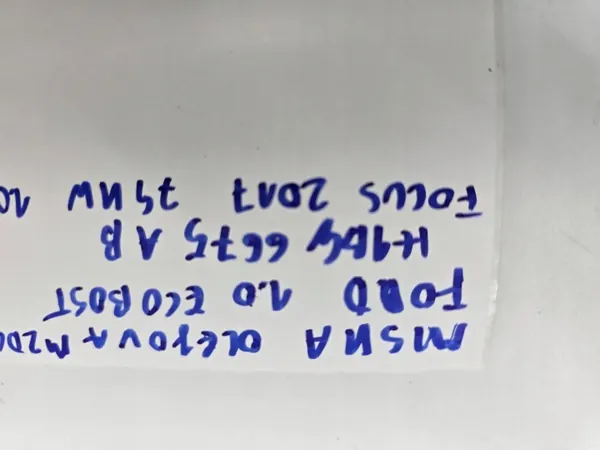 MISKA OLEJOVA
FORD 1.0 ECOBOST
H1BG 6675 AB
FOCUS 2017 74 KW